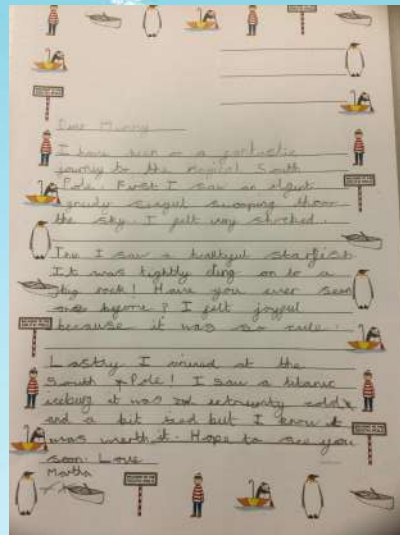 Dear Mummy
I have been on a fantastic
journey to the magical South
Pole. First I saw an elgent
greedy seagul swooping thror
the sky. I felt very shocked.
I saw a butyful starfish.
It was tightly cling on to a
big rock! Have you ever seen
one before? I felt joyful
because it was so
Lastly I arived at the
South Pole! I saw a titanic
iceburg it was cold
and a bit sced but I know it
was worth it. Hope to see you
soon. Love
Martha